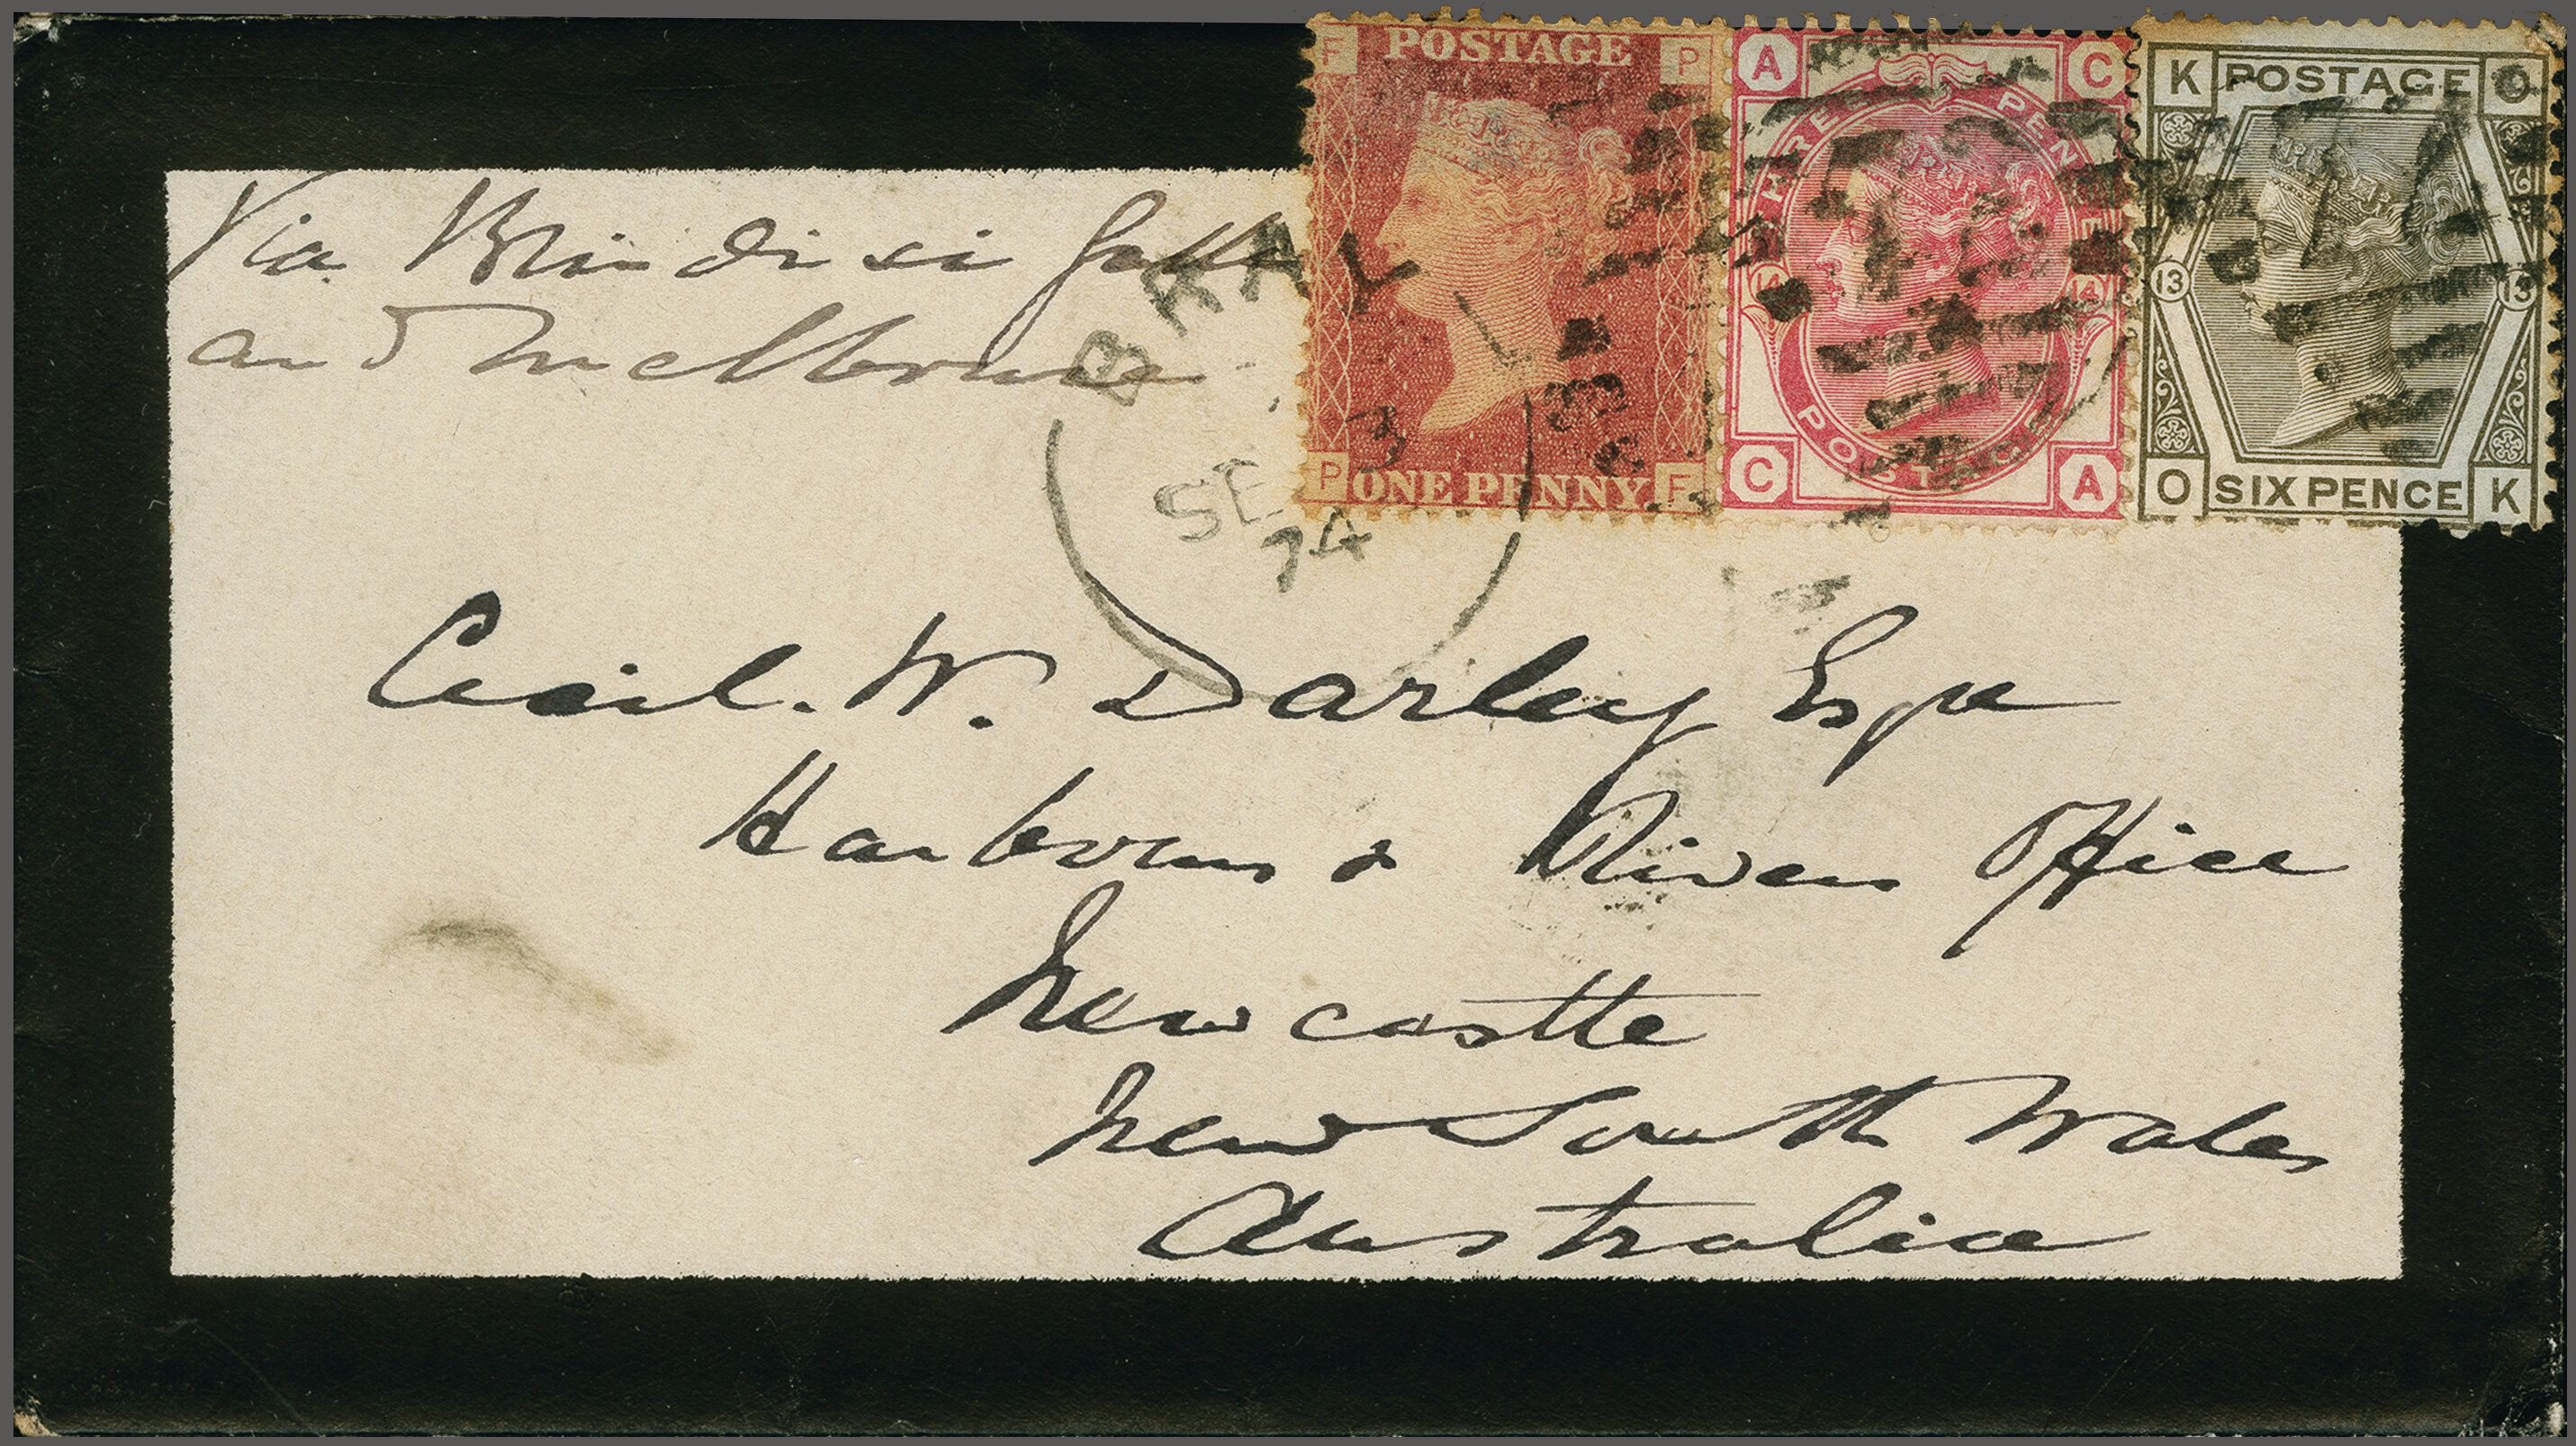 Via Brindisi Galle
and Melbourne
F POSTAGE P
P ONE PENNY F
A C
THREE PENCE
14 14
POSTAGE
C A
K POSTAGE O
13 13
O SIX PENCE K
BRAY
3
SE
74
Cecil. W. Darley Esqre
Harbours & Rivers Office
Newcastle
New South Wales
Australia